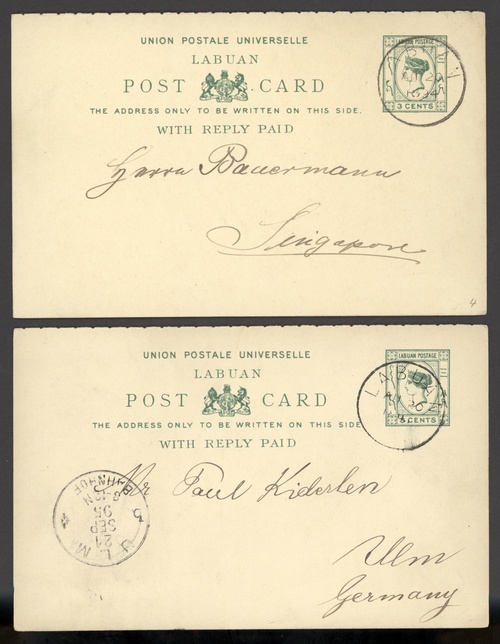 UNION POSTALE UNIVERSELLE
LABUAN
POST CARD
THE ADDRESS ONLY TO BE WRITTEN ON THIS SIDE.
WITH REPLY PAID
LABUAN POSTAGE
3 CENTS
LABUAN
Herrn Bauermann
Singapore
4
UNION POSTALE UNIVERSELLE
LABUAN
POST CARD
THE ADDRESS ONLY TO BE WRITTEN ON THIS SIDE.
WITH REPLY PAID
LABUAN POSTAGE
3 CENTS
LABUAN
Mr Paul Kiderlen
Ulm
Germany
ULM
21
SEP
95
BAHNHOF